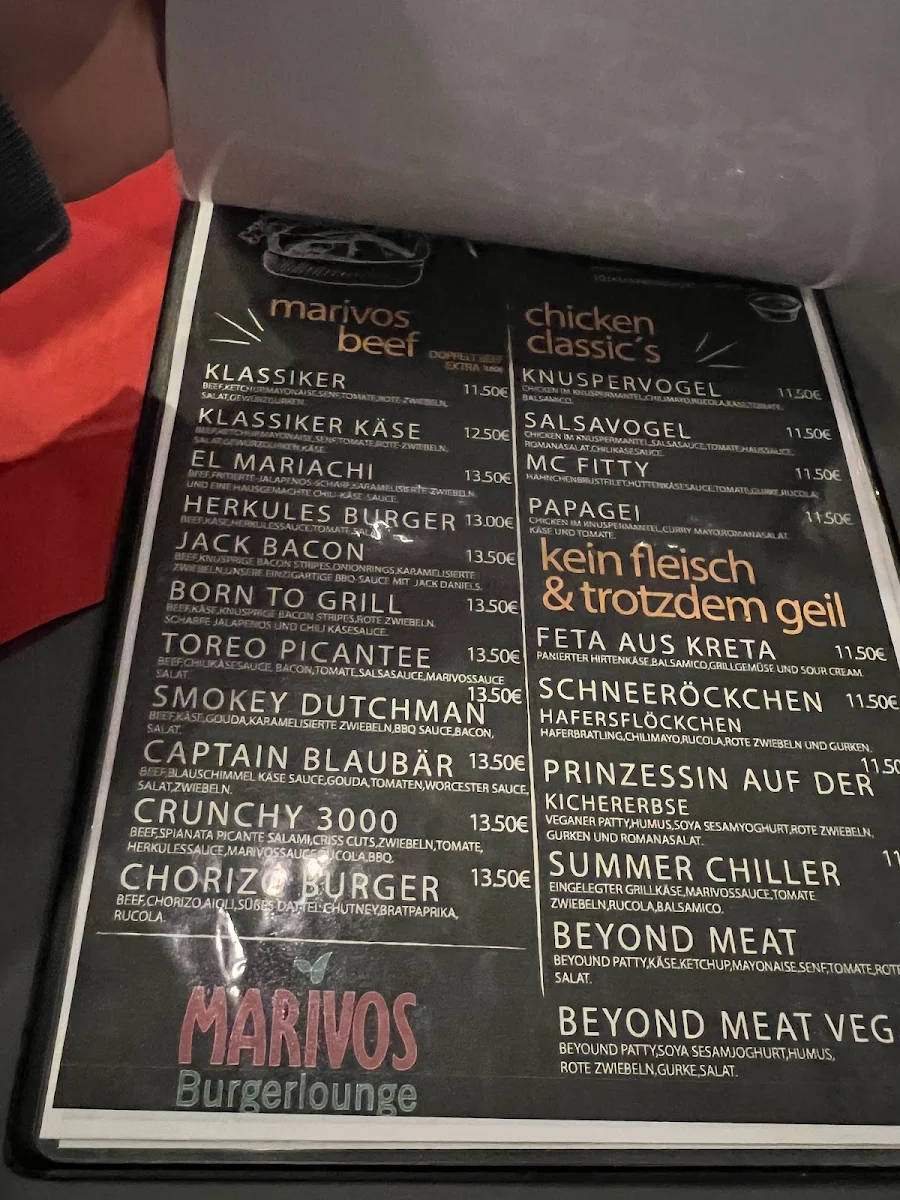 marivos
beef
DOPPELT BEEF
EXTRA
KLASSIKER 11.50€
BEEF,KETCHUP,MAYONAISE,SENF,TOMATE,ROTE-ZWIEBELN,
SALAT,GEWÜRZGURKEN.
KLASSIKER KÄSE 12.50€
BEEF,KETCHUP,MAYONAISE,SENF,TOMATE,ROTE-ZWIEBELN,
SALAT,GEWÜRZGURKEN,KÄSE.
EL MARIACHI 13.50€
BEEF,FRITIERTE-JALAPENOS-SCHARF,KARAMELISIERTE ZWIEBELN
UND EINE HAUSGEMACHTE CHILI-KÄSE SAUCE.
HERKULES BURGER 13.00€
BEEF,KÄSE,HERKULESSAUCE,TOMATE,
JACK BACON 13.50€
BEEF,KNUSPRIGE BACON STRIPES,ONIONRINGS,KARAMELISIERTE
ZWIEBELN,UNSERE EINZIGARTIGE BBQ-SAUCE MIT JACK DANIELS.
BORN TO GRILL 13.50€
BEEF,KÄSE,KNUSPRIGE BACON STRIPES,ROTE ZWIEBELN,
SCHARFE JALAPENOS UND CHILI KÄSESAUCE.
TOREO PICANTEE 13.50€
BEEF,CHILIKÄSESAUCE, BACON,TOMATE,SALSASAUCE,MARIVOSSAUCE
SALAT.
SMOKEY DUTCHMAN 13.50€
BEEF,KÄSE,GOUDA,KARAMELISIERTE ZWIEBELN,BBQ SAUCE,BACON,
SALAT.
CAPTAIN BLAUBÄR 13.50€
BEEF,BLAUSCHIMMEL KÄSE SAUCE,GOUDA,TOMATEN,WORCESTER SAUCE,
SALAT,ZWIEBELN.
CRUNCHY 3000 13.50€
BEEF,SPIANATA PICANTE SALAMI,CRISS CUTS,ZWIEBELN,TOMATE,
HERKULESSAUCE,MARIVOSSAUCE,RUCOLA,BBQ.
CHORIZO BURGER 13.50€
BEEF,CHORIZO,AIOLI,SÜßES DATTEL-CHUTNEY,BRATPAPRIKA,
RUCOLA.
MARIVOS
Burgerlounge
chicken
classic´s
KNUSPERVOGEL 11.50€
CHICKEN IM KNUSPERMANTEL,CHILIMAYO,RUCOLA,KÄSE,TOMATE,
BALSAMICO.
SALSAVOGEL 11.50€
CHICKEN IM KNUSPERMANTEL,SALSASAUCE,TOMATE,HAUSSAUCE,
ROMANASALAT,CHILIKÄSESAUCE.
MC FITTY 11.50€
HÄHNCHENBRUSTFILET,HÜTTENKÄSESAUCE,TOMATE,GURKE,RUCOLA.
PAPAGEI 11.50€
CHICKEN IM KNUSPERMANTEL,CURRY MAYO,ROMANASALAT,
KÄSE UND TOMATE.
kein fleisch
& trotzdem geil
FETA AUS KRETA 11.50€
PANIERTER HIRTENKÄSE,BALSAMICO,GRILLGEMÜSE UND SOUR CREAM.
SCHNEERÖCKCHEN 11.50€
HAFERSFLÖCKCHEN
HAFERBRATLING,CHILIMAYO,RUCOLA,ROTE ZWIEBELN UND GURKEN.
PRINZESSIN AUF DER 11.50
KICHERERBSE
VEGANER PATTY,HUMUS,SOYA SESAMYOGHURT,ROTE ZWIEBELN,
GURKEN UND ROMANASALAT.
SUMMER CHILLER 11
EINGELEGTER GRILLKÄSE,MARIVOSSAUCE,TOMATE
ZWIEBELN,RUCOLA,BALSAMICO.
BEYOND MEAT
BEYOUND PATTY,KÄSE,KETCHUP,MAYONAISE,SENF,TOMATE,ROTE
SALAT.
BEYOND MEAT VEG
BEYOUND PATTY,SOYA SESAMJOGHURT,HUMUS,
ROTE ZWIEBELN,GURKE,SALAT.